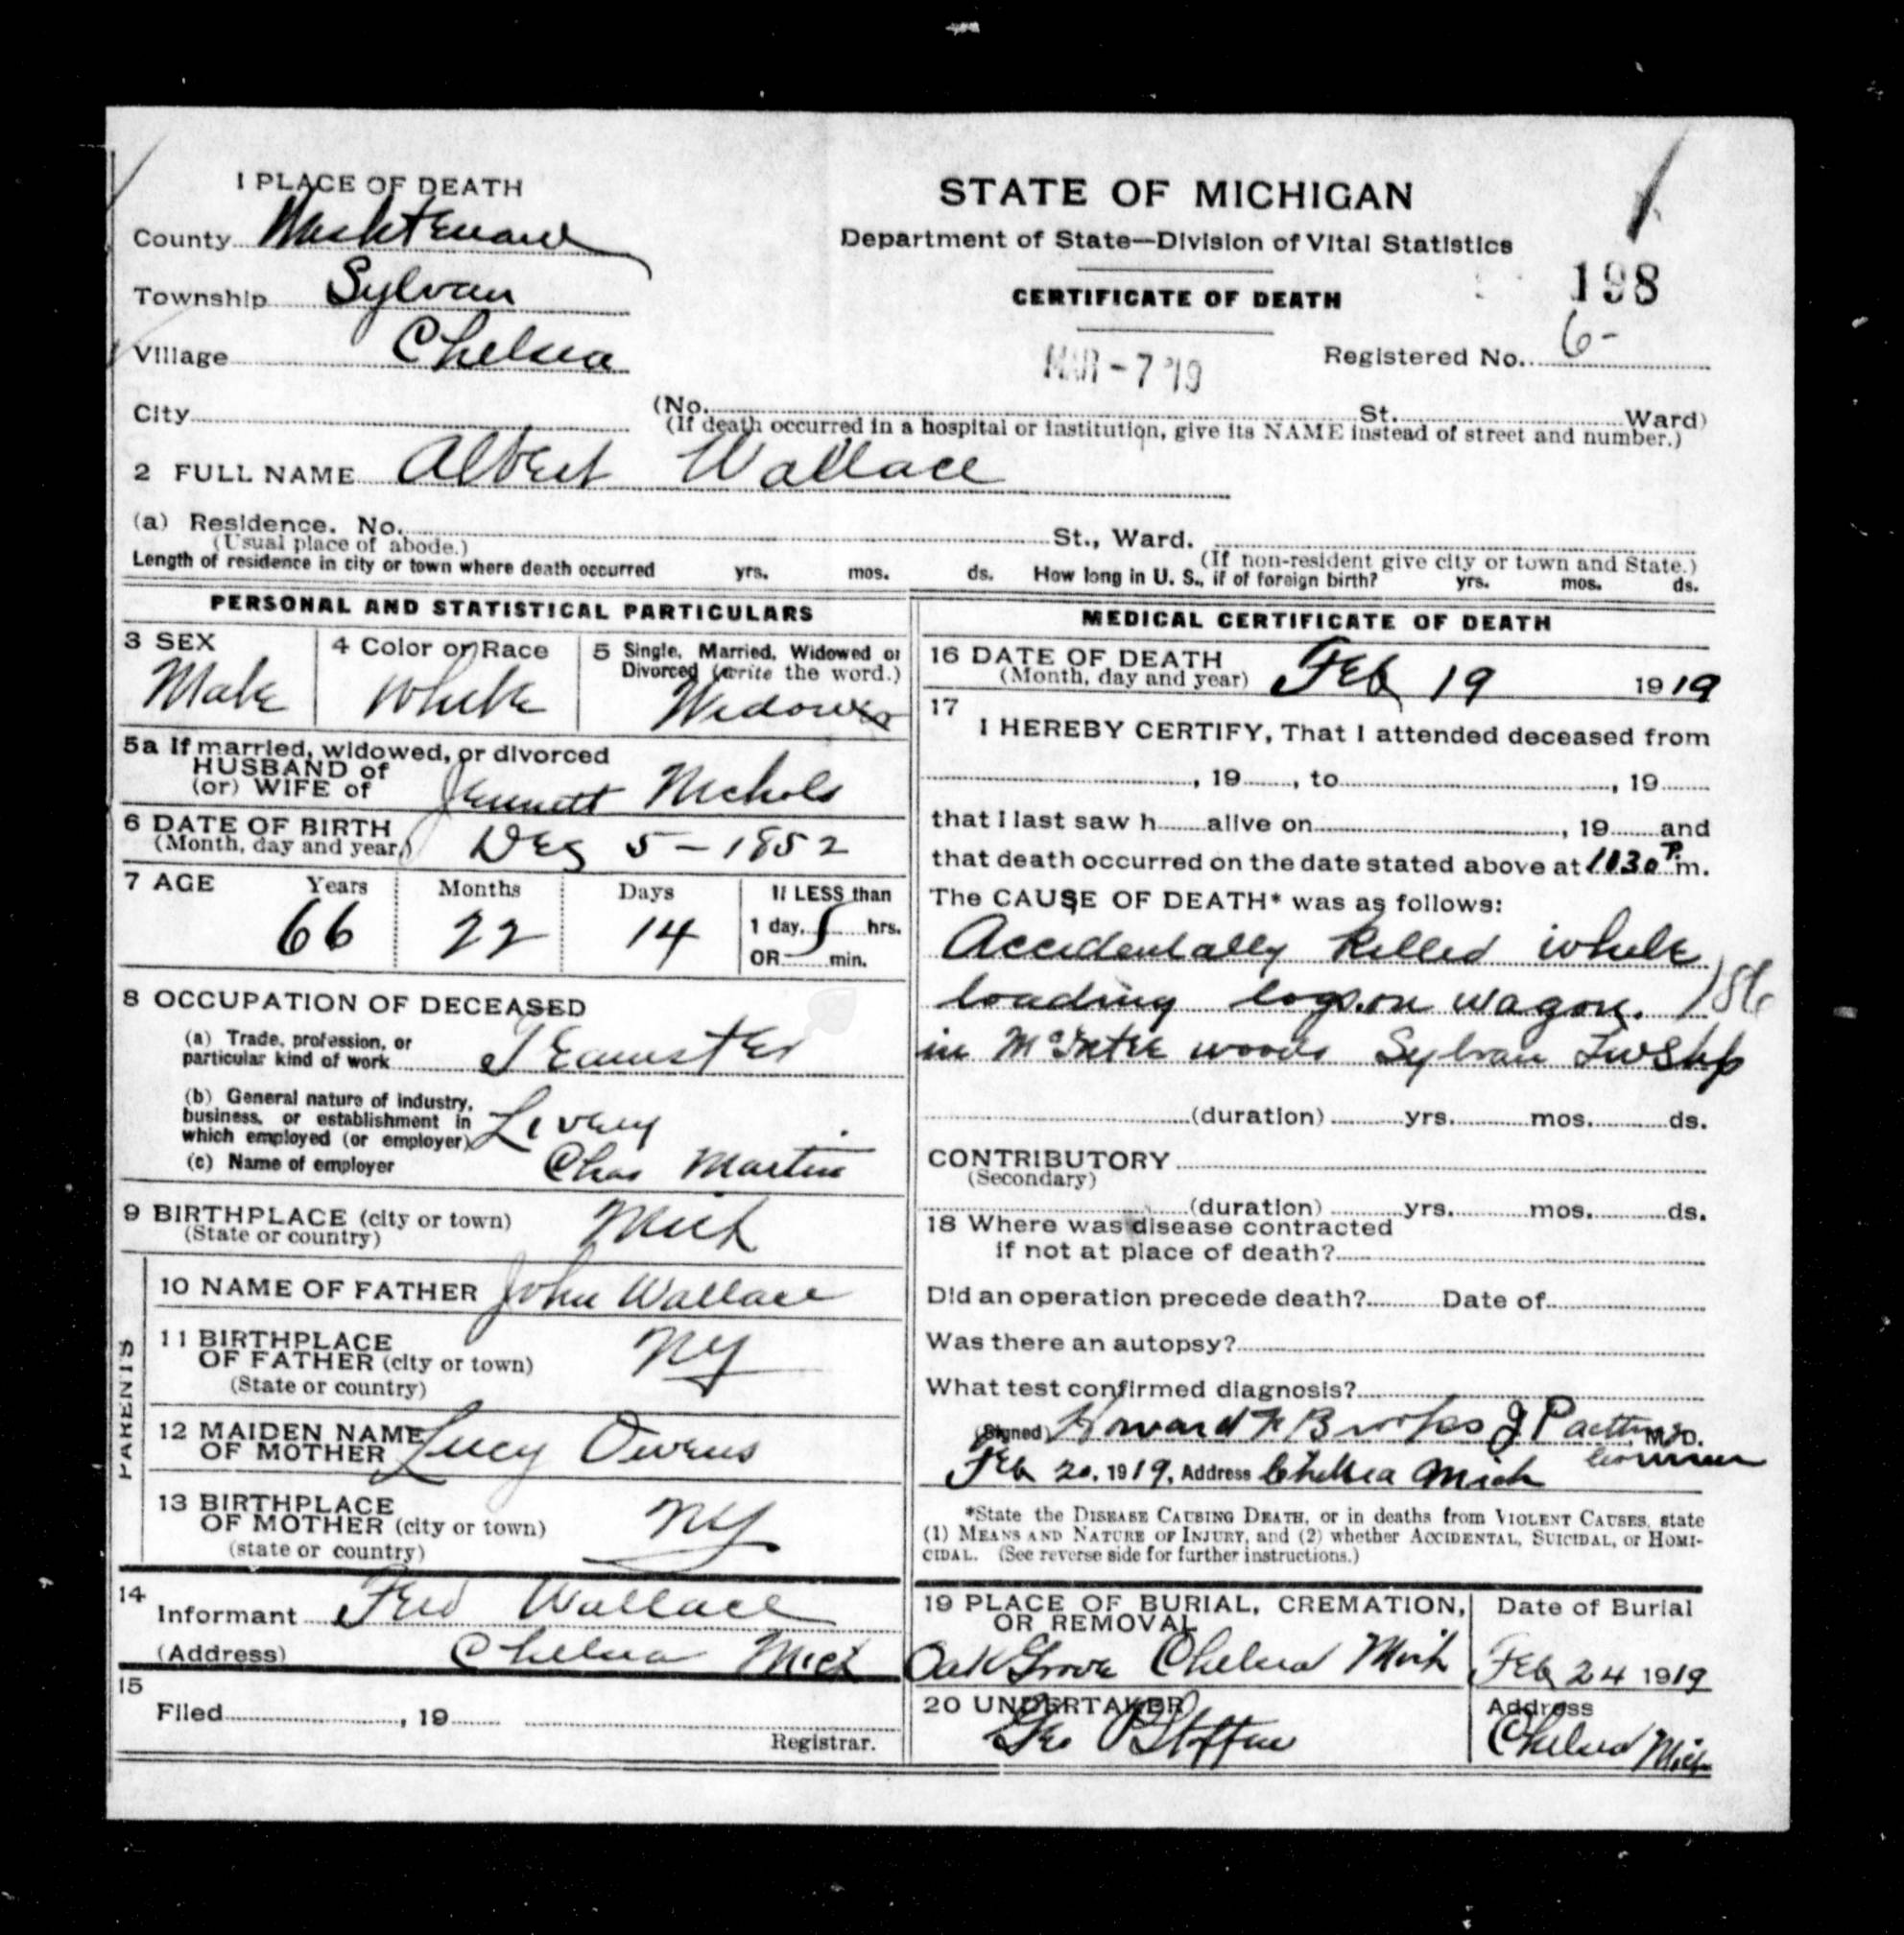 1 PLACE OF DEATH
STATE OF MICHIGAN
Department of State—Division of Vital Statistics
CERTIFICATE OF DEATH
County Washtenaw
Township Sylvan
Village Chelsea
198
MAR -7 '19
Registered No. 6-
City (No. St. Ward)
(If death occurred in a hospital or institution, give its NAME instead of street and number.)
2 FULL NAME Albert Wallace
(a) Residence. No. St., Ward.
(Usual place of abode.) (If non-resident give city or town and State.)
Length of residence in city or town where death occurred yrs. mos. ds. How long in U. S., if of foreign birth? yrs. mos. ds.
PERSONAL AND STATISTICAL PARTICULARS
3 SEX
Male
4 Color or Race
White
5 Single, Married, Widowed or
Divorced (write the word.)
Widower
5a If married, widowed, or divorced
HUSBAND of
(or) WIFE of Jennett Nichols
6 DATE OF BIRTH
(Month, day and year) Dec 5 - 1852
7 AGE Years Months Days If LESS than
66 22 14 1 day, hrs.
OR min.
8 OCCUPATION OF DECEASED
(a) Trade, profession, or
particular kind of work Teamster
(b) General nature of industry,
business, or establishment in
which employed (or employer) Livery
(c) Name of employer Chas Martin
9 BIRTHPLACE (city or town)
(State or country) Mich
PARENTS
10 NAME OF FATHER John Wallace
11 BIRTHPLACE
OF FATHER (city or town) NY
(State or country)
12 MAIDEN NAME
OF MOTHER Lucy Owens
13 BIRTHPLACE
OF MOTHER (city or town) NY
(state or country)
14
Informant Fred Wallace
(Address) Chelsea Mich
15
Filed , 19
Registrar.
MEDICAL CERTIFICATE OF DEATH
16 DATE OF DEATH
(Month, day and year) Feb 19 1919
17
I HEREBY CERTIFY, That I attended deceased from
, 19 , to , 19
that I last saw h alive on , 19 and
that death occurred on the date stated above at P. m.
The CAUSE OF DEATH* was as follows:
Accidentally killed while
loading logs on wagon. 186
in woods Sylvan Twshp
(duration) yrs. mos. ds.
CONTRIBUTORY
(Secondary)
(duration) yrs. mos. ds.
18 Where was disease contracted
if not at place of death?
Did an operation precede death? Date of
Was there an autopsy?
What test confirmed diagnosis?
(Signed) Howard Brooks J P acting M. D.
coroner
Feb 20, 1919, Address Chelsea Mich
*State the DISEASE CAUSING DEATH, or in deaths from VIOLENT CAUSES, state
(1) MEANS AND NATURE OF INJURY, and (2) whether ACCIDENTAL, SUICIDAL, or HOMI-
CIDAL. (See reverse side for further instructions.)
19 PLACE OF BURIAL, CREMATION,
OR REMOVAL
Oak Grove Chelsea Mich
Date of Burial
Feb 24 1919
20 UNDERTAKER
Geo P Staffan
Address
Chelsea Mich